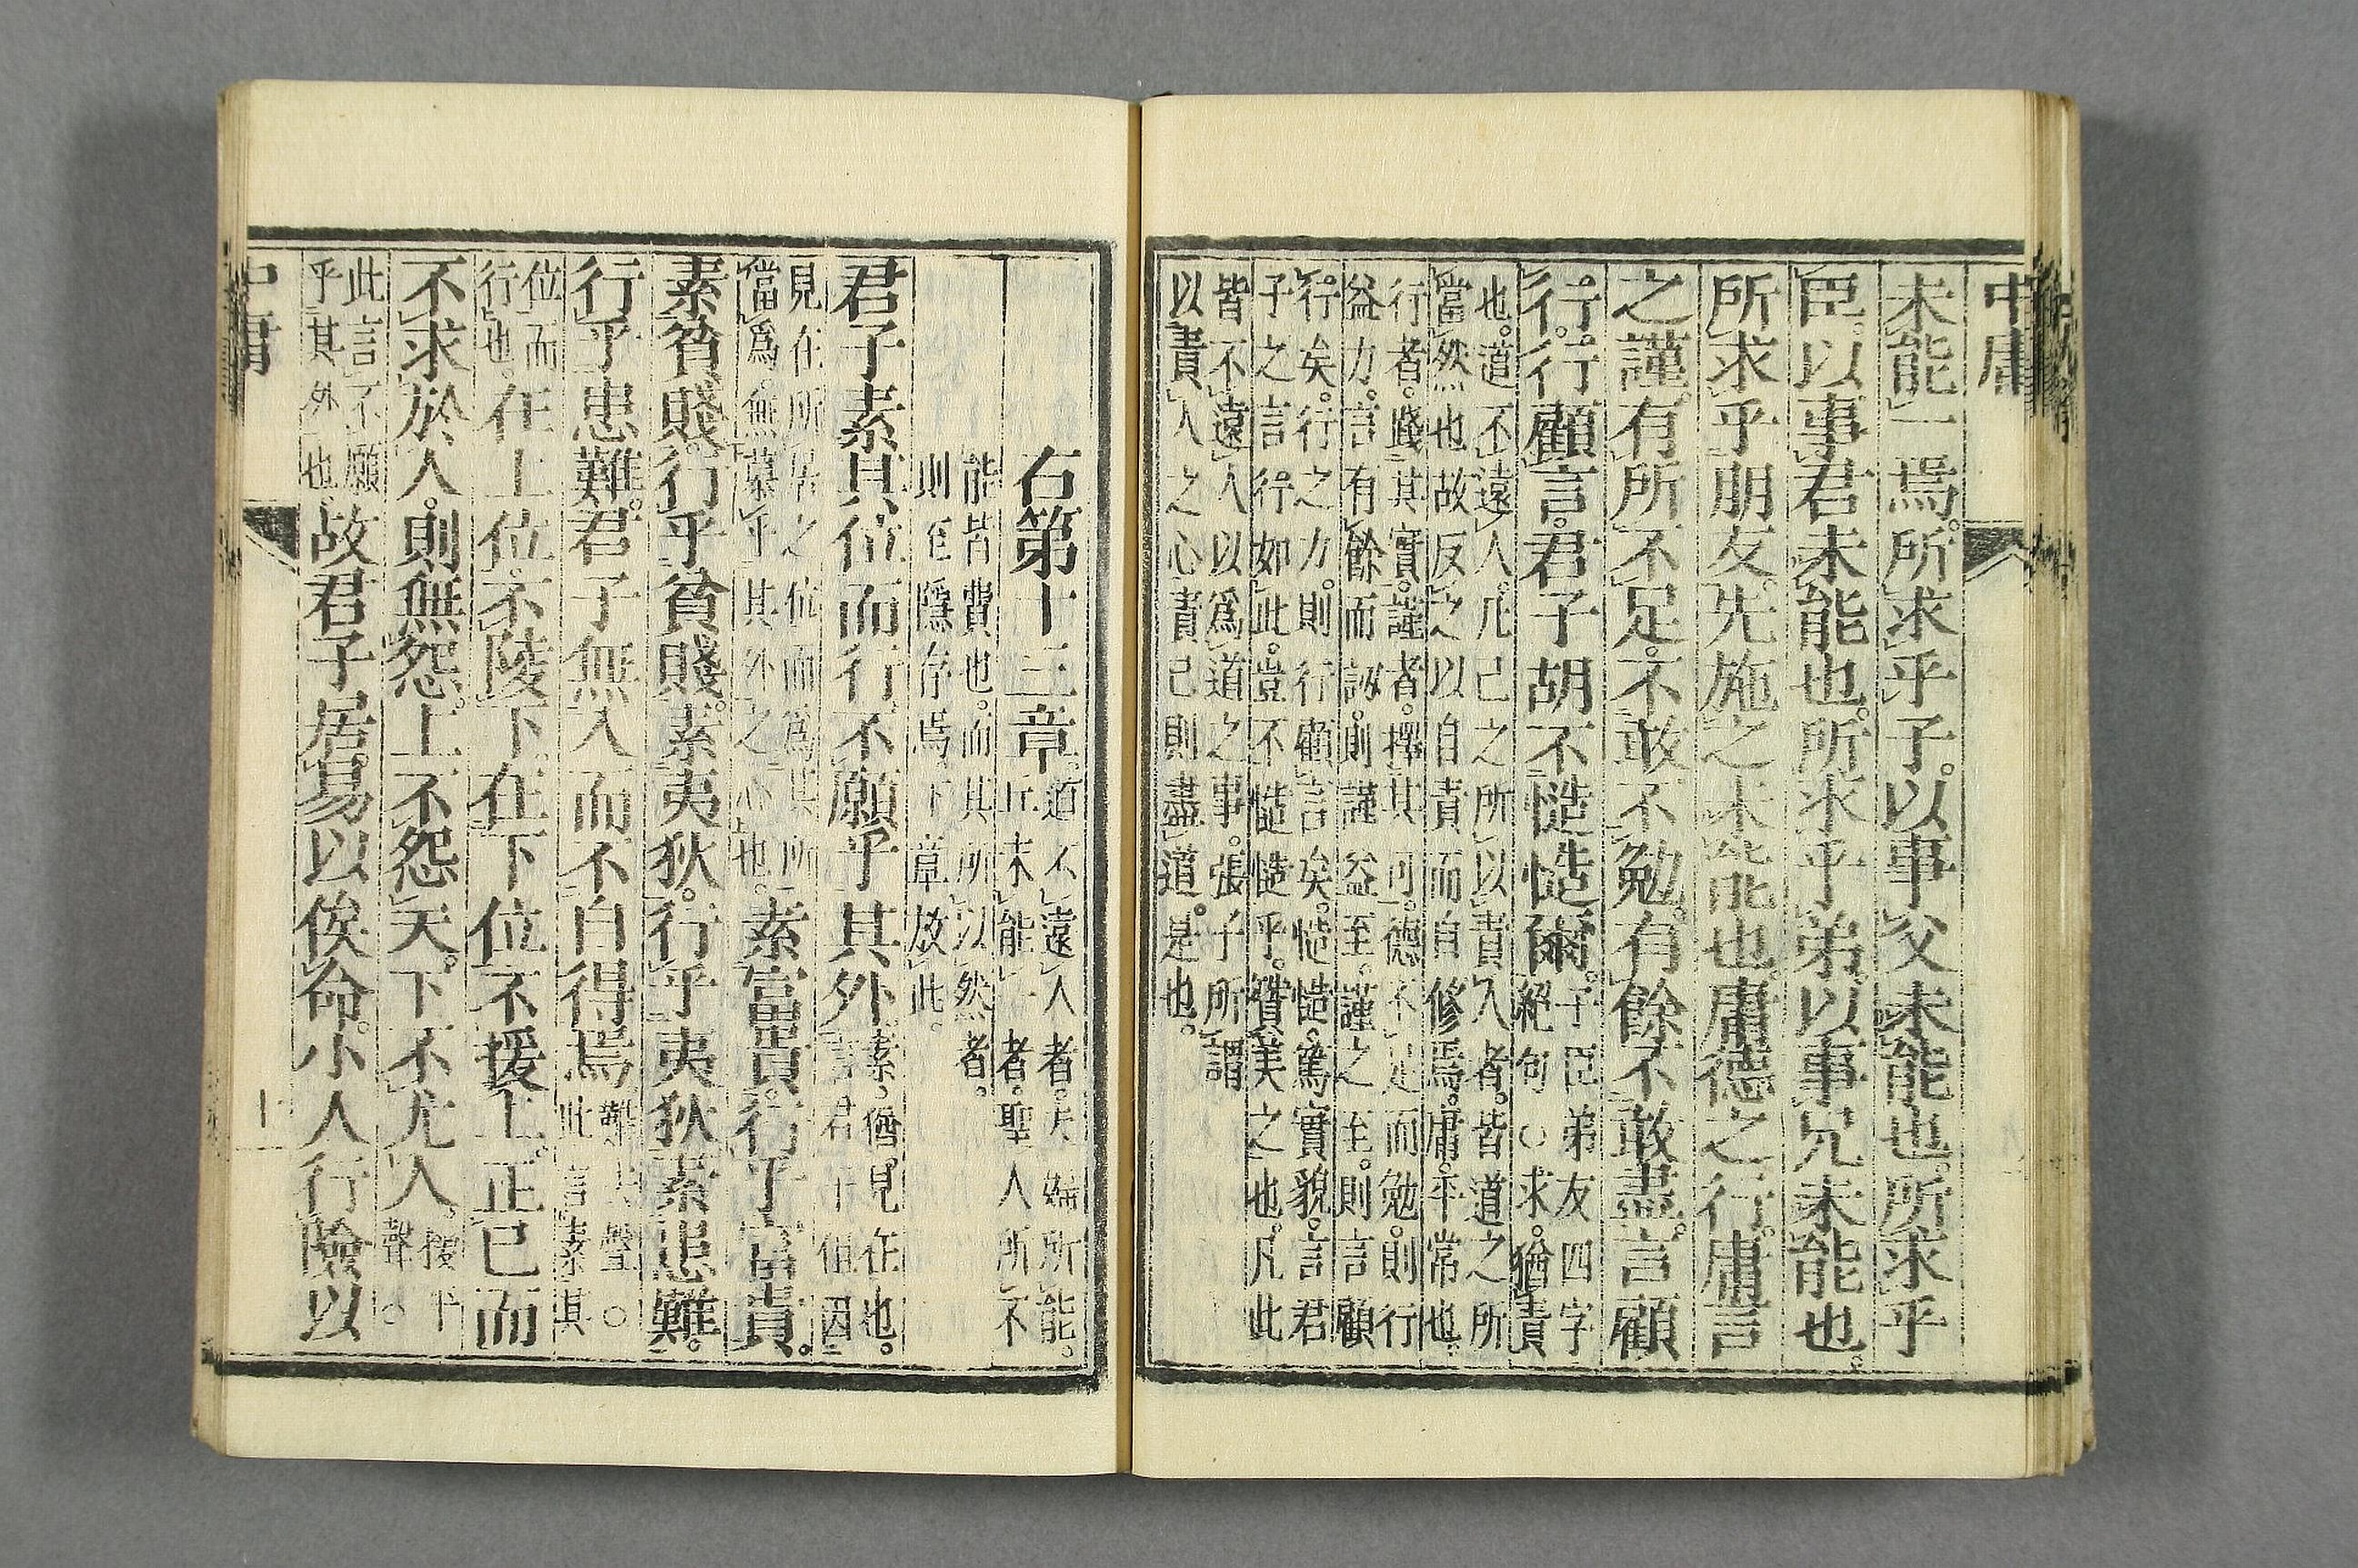 中庸
未能一焉。所求乎子。以事父未能也。所求乎
臣。以事君未能也。所求乎弟。以事兄未能也。
所求乎朋友。先施之未能也。庸德之行。庸言
之謹。有所不足。不敢不勉。有餘不敢盡。言顧
行。行顧言。君子胡不慥慥爾。子臣弟友四字
絕句○求。猶責
也。道不遠人。凡己之所以責人者。皆道之所
當然也故反之以自責而自修焉。庸。平常也。
行者。踐其實。謹者。擇其可。德不足而勉。則行
益力。言有餘而訒。則謹益至。謹之至。則言顧
行矣。行之力。則行顧言矣。慥慥。篤實貌。言君
子之言行如此。豈不慥慥乎。贊美之也。凡此
皆不遠人以爲道之事。張子所謂
以責人之心責己則盡道。是也。
右第十三章。道不遠人者。夫婦所能。
丘未能一者。聖人所不
能皆費也。而其所以然者。
則至隱存焉。下章放此。
君子素其位而行不願乎其外。素。猶。見在也。
言君子但因
見在所居之位而爲其所
當爲。無慕乎其外之心也。素富貴。行乎富貴。
素貧賤。行乎貧賤。素夷狄。行乎夷狄。素患難。
行乎患難。君子無入而不自得焉。難去聲○
此言素其
位而
行也。在上位。不陵下。在下位。不援上。正己而
不求於人。則無怨。上不怨天。下不尤人。援平
聲○
此言不願
乎其外也。故君子居易以俟命。小人行險以
中庸
十